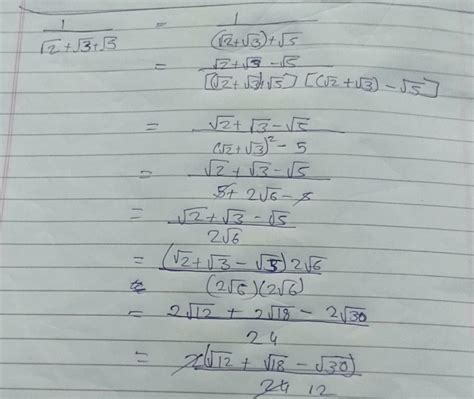 1/(√2+√3+√3) = 1/((√2+√3)+√5)
= (√2+√3-√5)/([(√2+√3)+√5] [(√2+√3)-√5])
= (√2+√3-√5)/((√2+√3)²-5)
= (√2+√3-√5)/(5+2√6-5)
= (√2+√3-√5)/(2√6)
= ((√2+√3-√5)2√6)/((2√6)(2√6))
= (2√12+2√18-2√30)/24
= 2(√12+√18-√30)/24 12